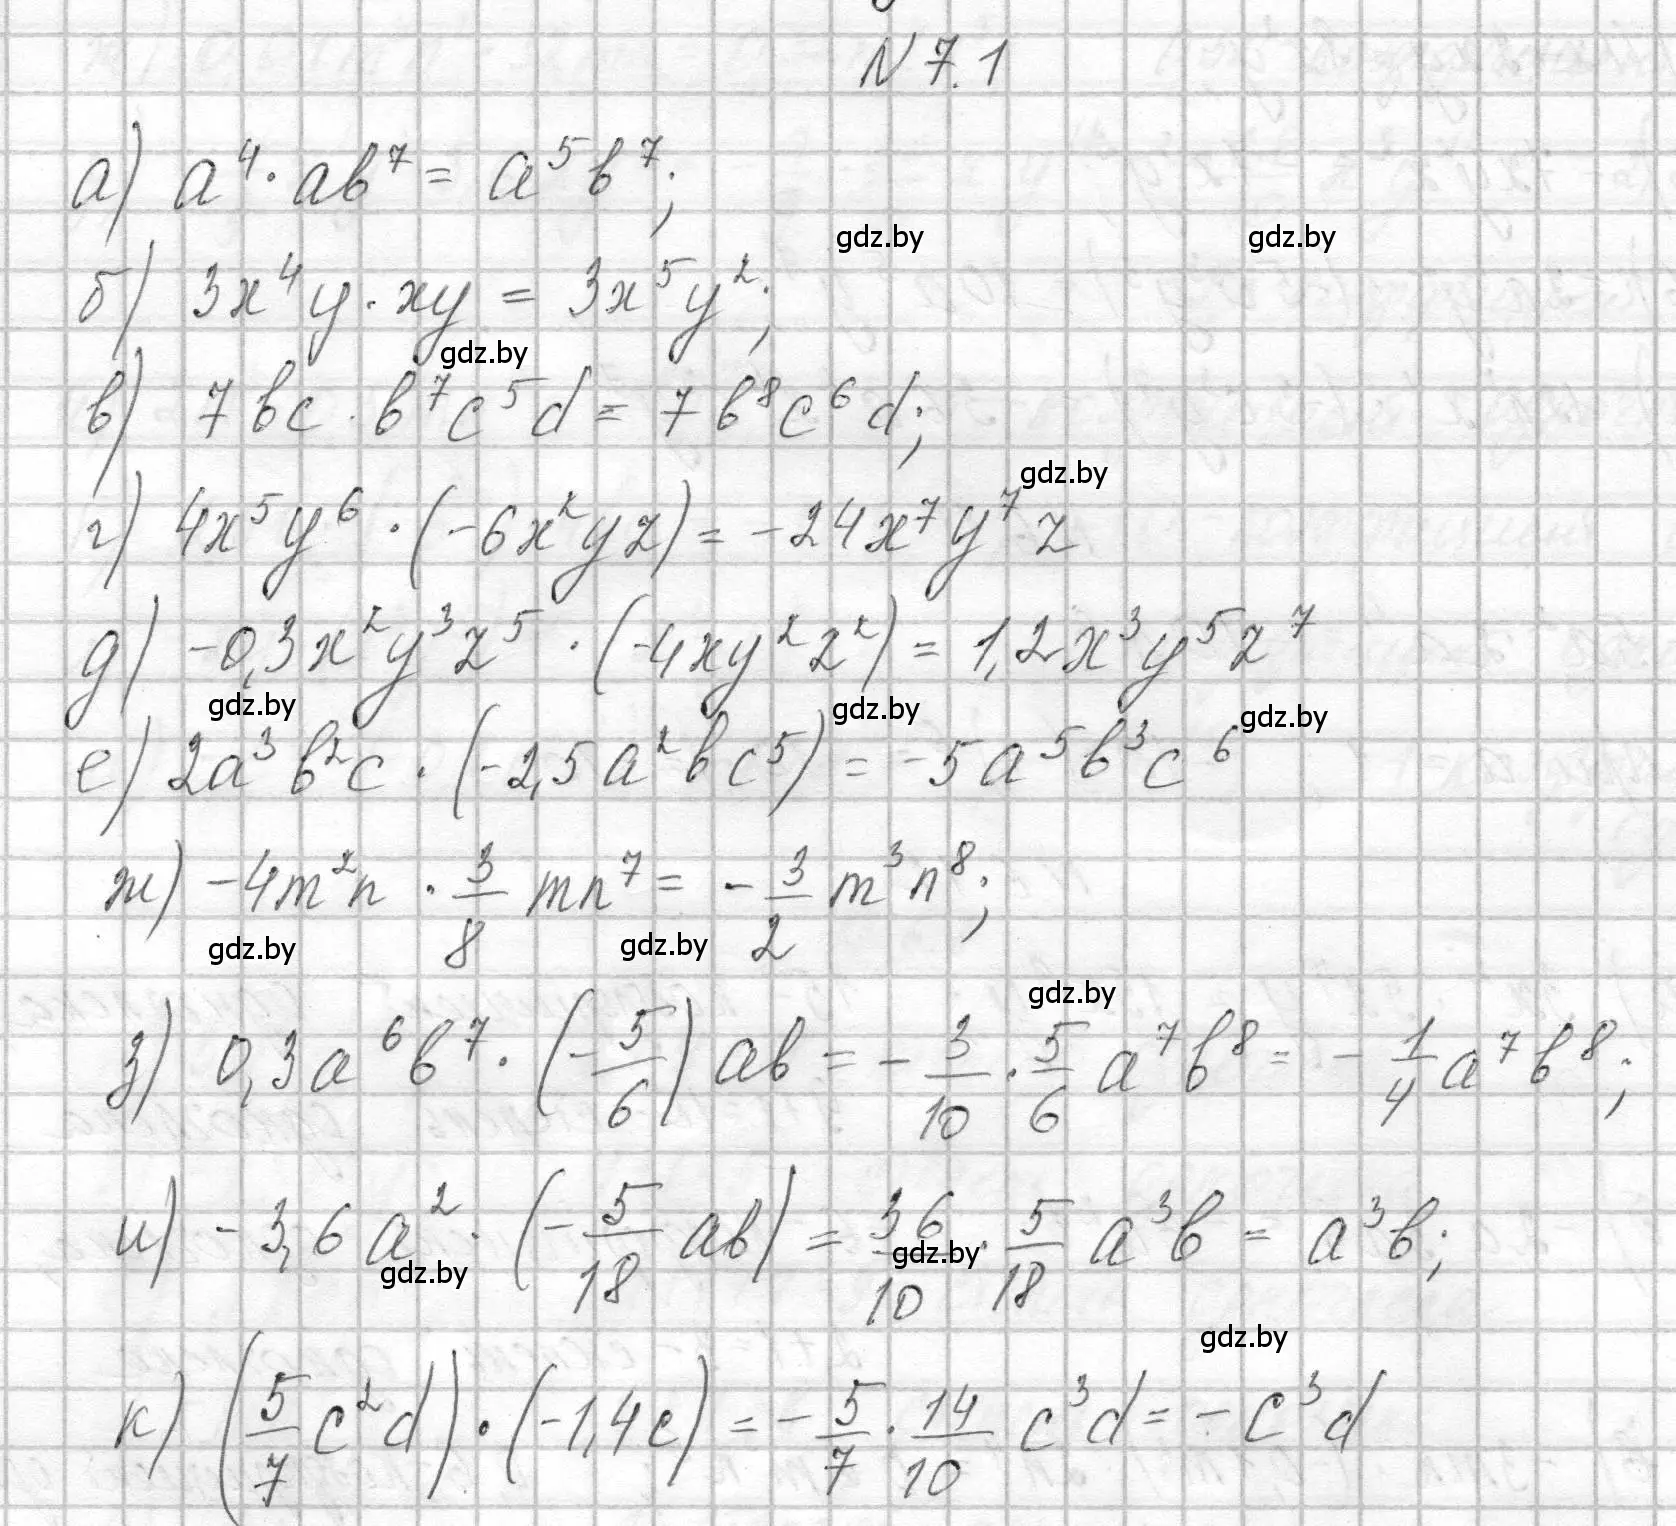 N 7.1
а) a⁴ · ab⁷ = a⁵b⁷;
gdz.by gdz.by
б) 3x⁴y · xy = 3x⁵y²;
gdz.by
в) 7bc · b⁷c⁵d = 7b⁸c⁶d;
gdz.by
г) 4x⁵y⁶ · (-6x²yz) = -24x⁷y⁷z
д) -0,3x²y³z⁵ · (-4xy²z²) = 1,2x³y⁵z⁷
gdz.by gdz.by gdz.by
е) 2a³b²c · (-2,5a²bc⁵) = -5a⁵b³c⁶
ж) -4m²n · 3/8 mn⁷ = - 3/2 m³n⁸;
gdz.by gdz.by
gdz.by
з) 0,3a⁶b⁷ · (- 5/6) ab = - 3/10 · 5/6 a⁷b⁸ = - 1/4 a⁷b⁸;
и) -3,6a² · (- 5/18 ab) = 36/10 · 5/18 a³b = a³b;
gdz.by gdz.by
gdz.by
к) (5/7 c²d) · (-1,4c) = - 5/7 · 14/10 c³d = - c³d